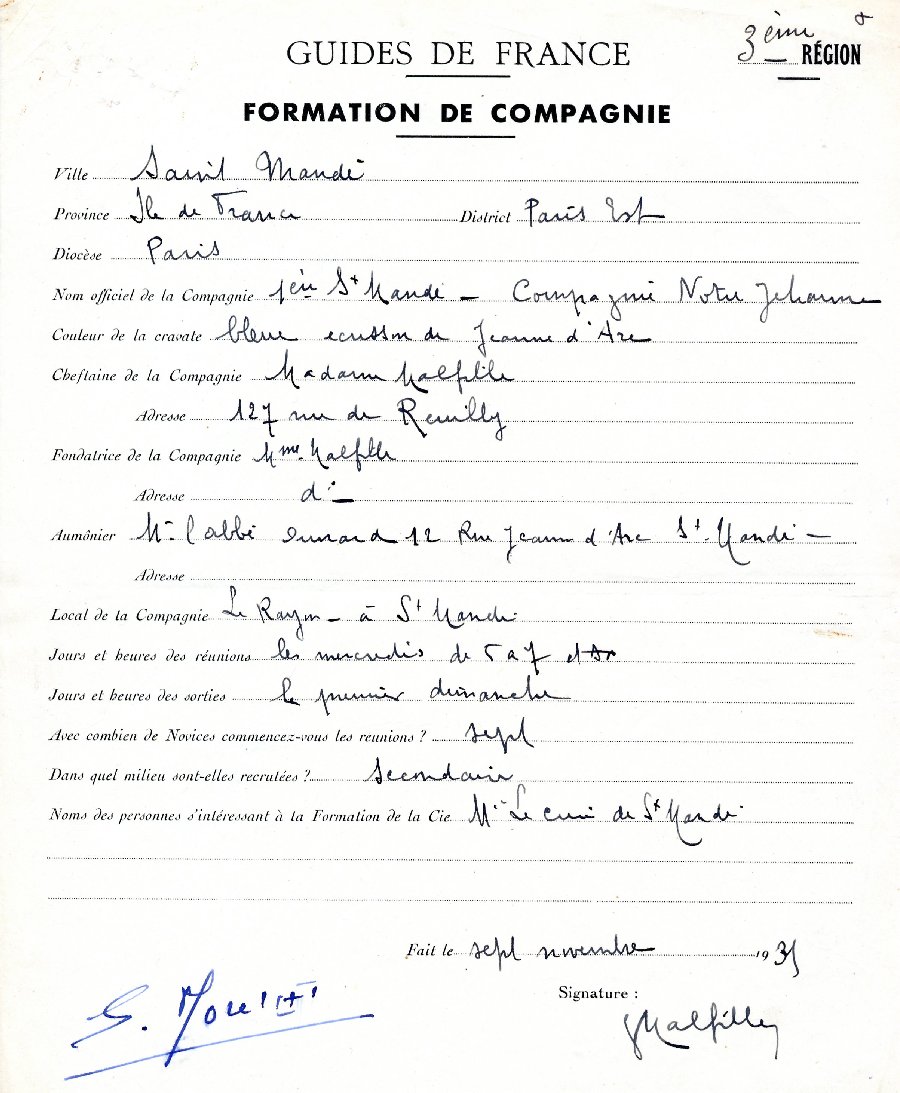 3ème RÉGION
GUIDES DE FRANCE
FORMATION DE COMPAGNIE
Ville Saint Mandé
Province Ile de France District Paris Est
Diocèse Paris
Nom officiel de la Compagnie 1ère St Mandé - Compagnie Notre Jehanne
Couleur de la cravate bleue ecusson de Jeanne d'Arc
Cheftaine de la Compagnie Madame Malfille
Adresse 127 rue de Reuilly
Fondatrice de la Compagnie Mme Malfille
Adresse d°
Aumônier Mr l'abbé 12 Rue Jeanne d'Arc St Mandé -
Adresse
Local de la Compagnie Le - à St Mandé
Jours et heures des réunions les mercredis de 5 a 7
Jours et heures des sorties le premier dimanche
Avec combien de Novices commencez-vous les réunions ? sept
Dans quel milieu sont-elles recrutées ? Secondaire
Noms des personnes s'intéressant à la Formation de la Cie Mr Le curé de St Mandé
Fait le sept novembre 1935
Signature :
Malfille